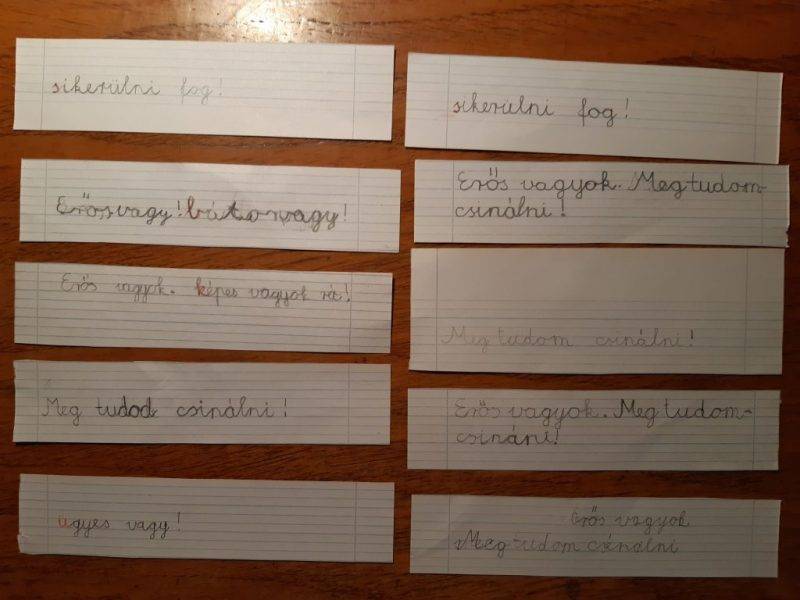 sikerülni fog!
Erős vagy! bátor vagy!
Erős vagyok. képes vagyok rá!
Meg tudod csinálni!
ügyes vagy!
sikerülni fog!
Erős vagyok. Meg tudom
csinálni!
Meg tudom csinálni!
Erős vagyok. Meg tudom
csináni!
Erős vagyok
Meg tudom csinálni